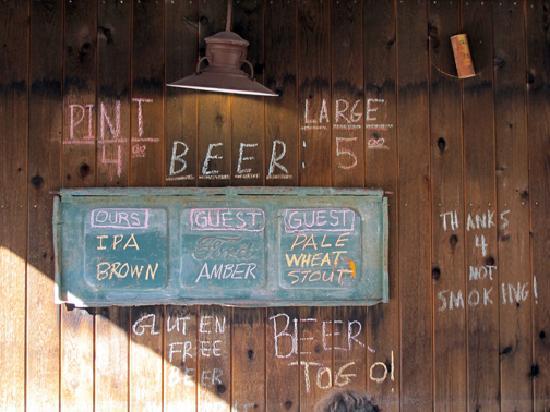 PINT
4 00
BEER:
LARGE
5 00
OURS
IPA
BROWN
GUEST
Ford
AMBER
GUEST
PALE
WHEAT
STOUT
THANKS
4
NOT
SMOKING!
GLUTEN
FREE
BEER
BEER
TO GO!